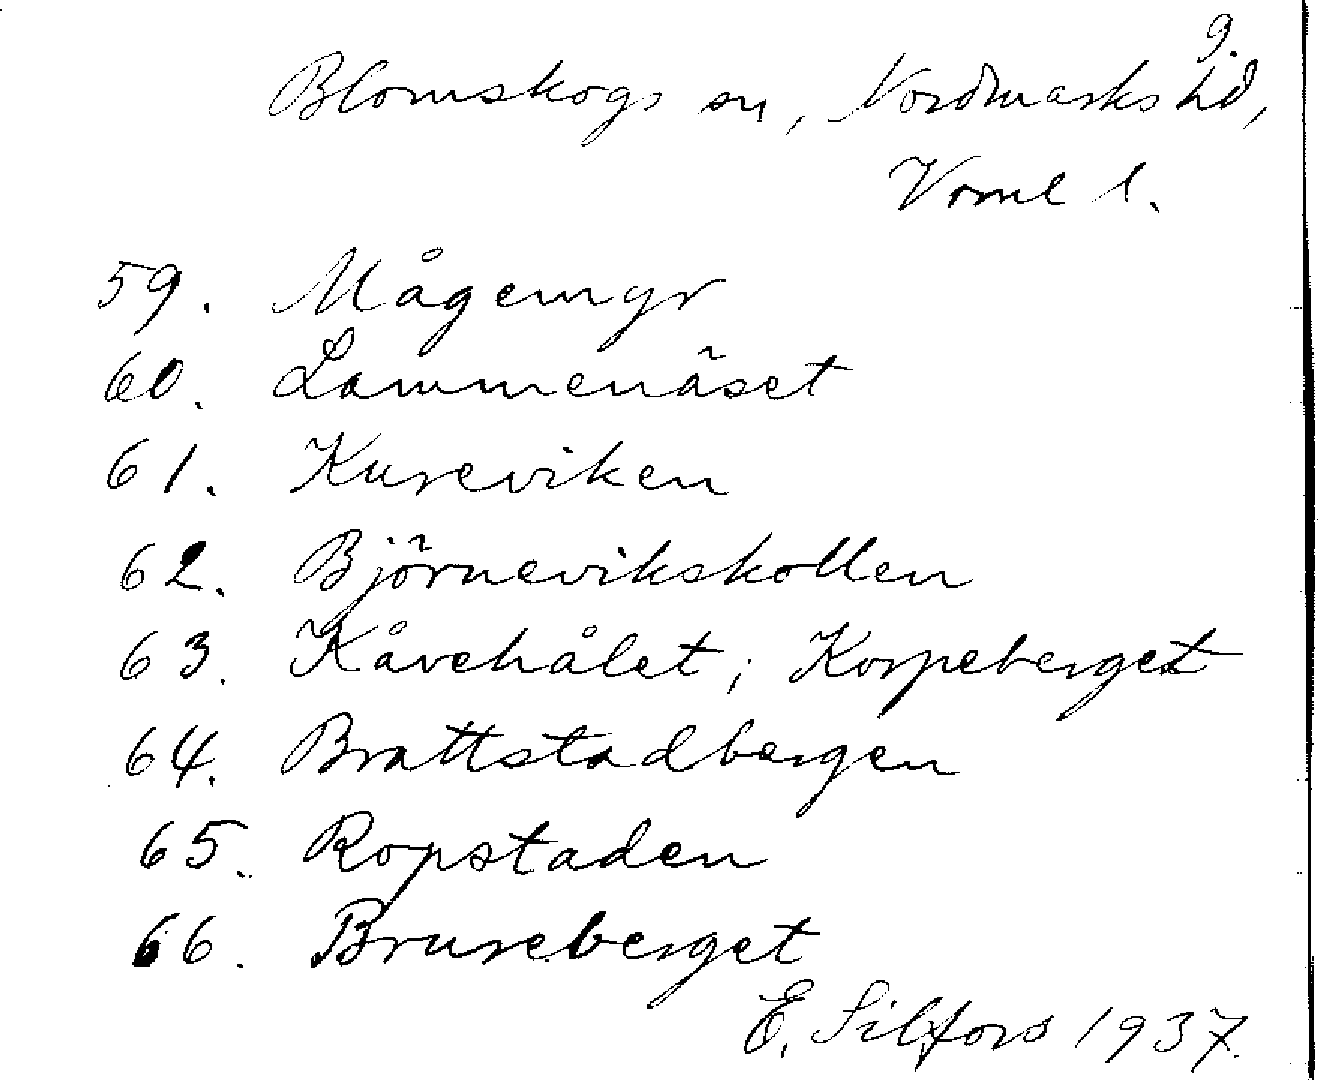 9.
Blomskogs sn, Nordmarks hd,
Vrml l.
59. Mågemyr
60. Lammenäset
61. Kureviken
62. Björnevikskollen
63. Kåvehålet; Korpeberget
64. Brattstadbergen
65. Ropstaden
66. Brureberget
E. Silfors 1937.